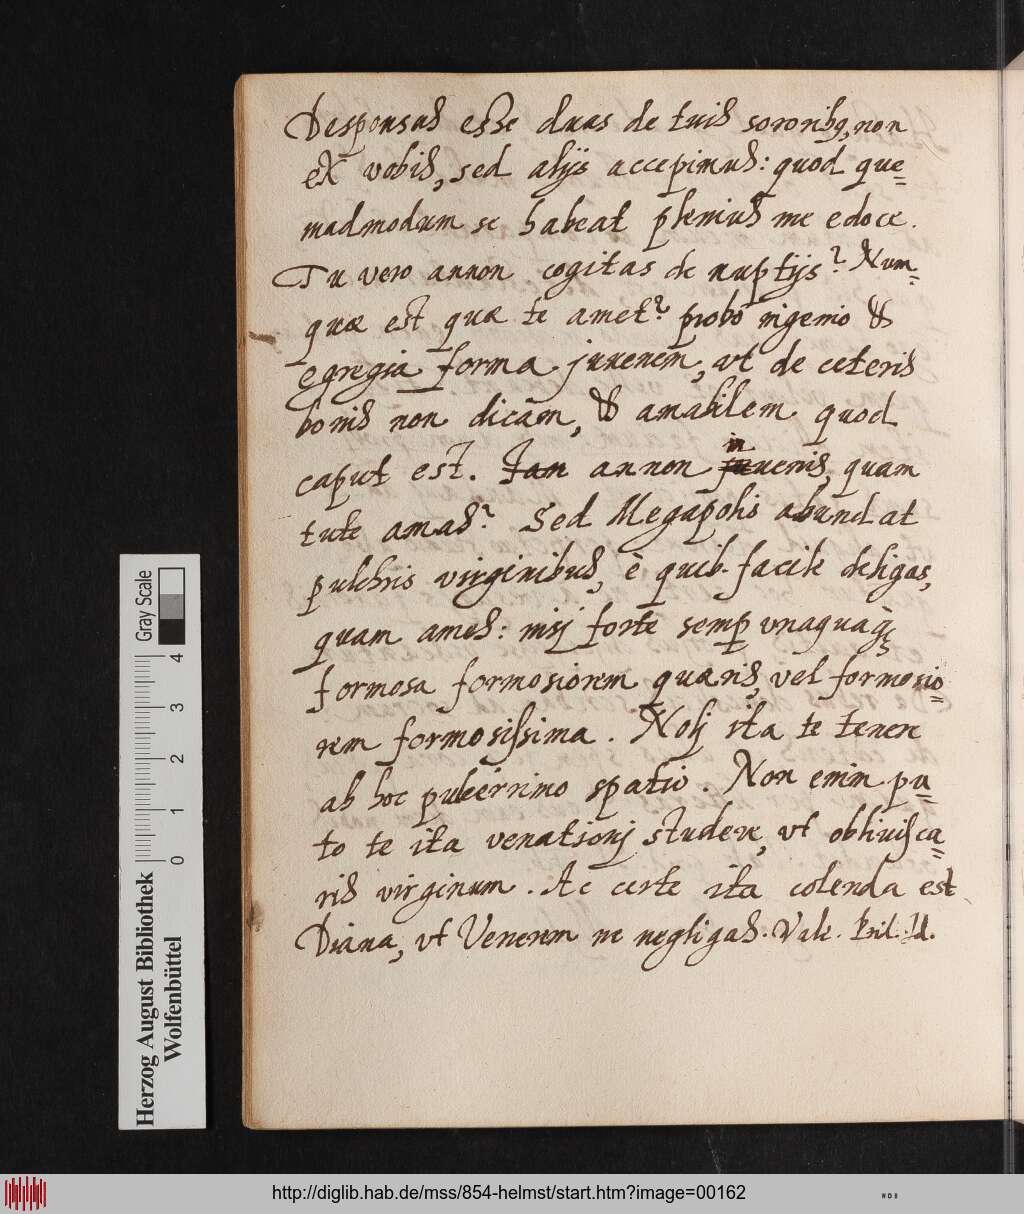 Desponsas esse duas de tuis sororibq, non
ex vobis, sed alijs accepimus: quod que=
madmodum se habeat plenius me edoce.
Tu vero annon cogitas de nuptijs? Num=
quæ est quæ te amet? probo ingenio &
egregia forma juuenem, vt de ceteris
bonis non dicam, & amabilem quod
caput est. Jam annon in
juuenis, quam
tute amas? Sed Megapolis abundat
pulchris virginibus, è quib. facile deligas,
quam ames: nisj forte semp vnaquaq̃
formosa formosiorem quæris, vel formosio=
rem formosissima. Nolj ita te tenere
ab hoc pulcerrimo spatio. Non enim pu=
to te ita venationj studere, vt obliuisca=
ris virginum. Ac certe ita colenda est
Diana, vt Venerem ne negligas. Vale. Prid. Id.
Herzog August Bibliothek
Wolfenbüttel
Gray Scale
0 1 2 3 4
http://diglib.hab.de/mss/854-helmst/start.htm?image=00162
WDB